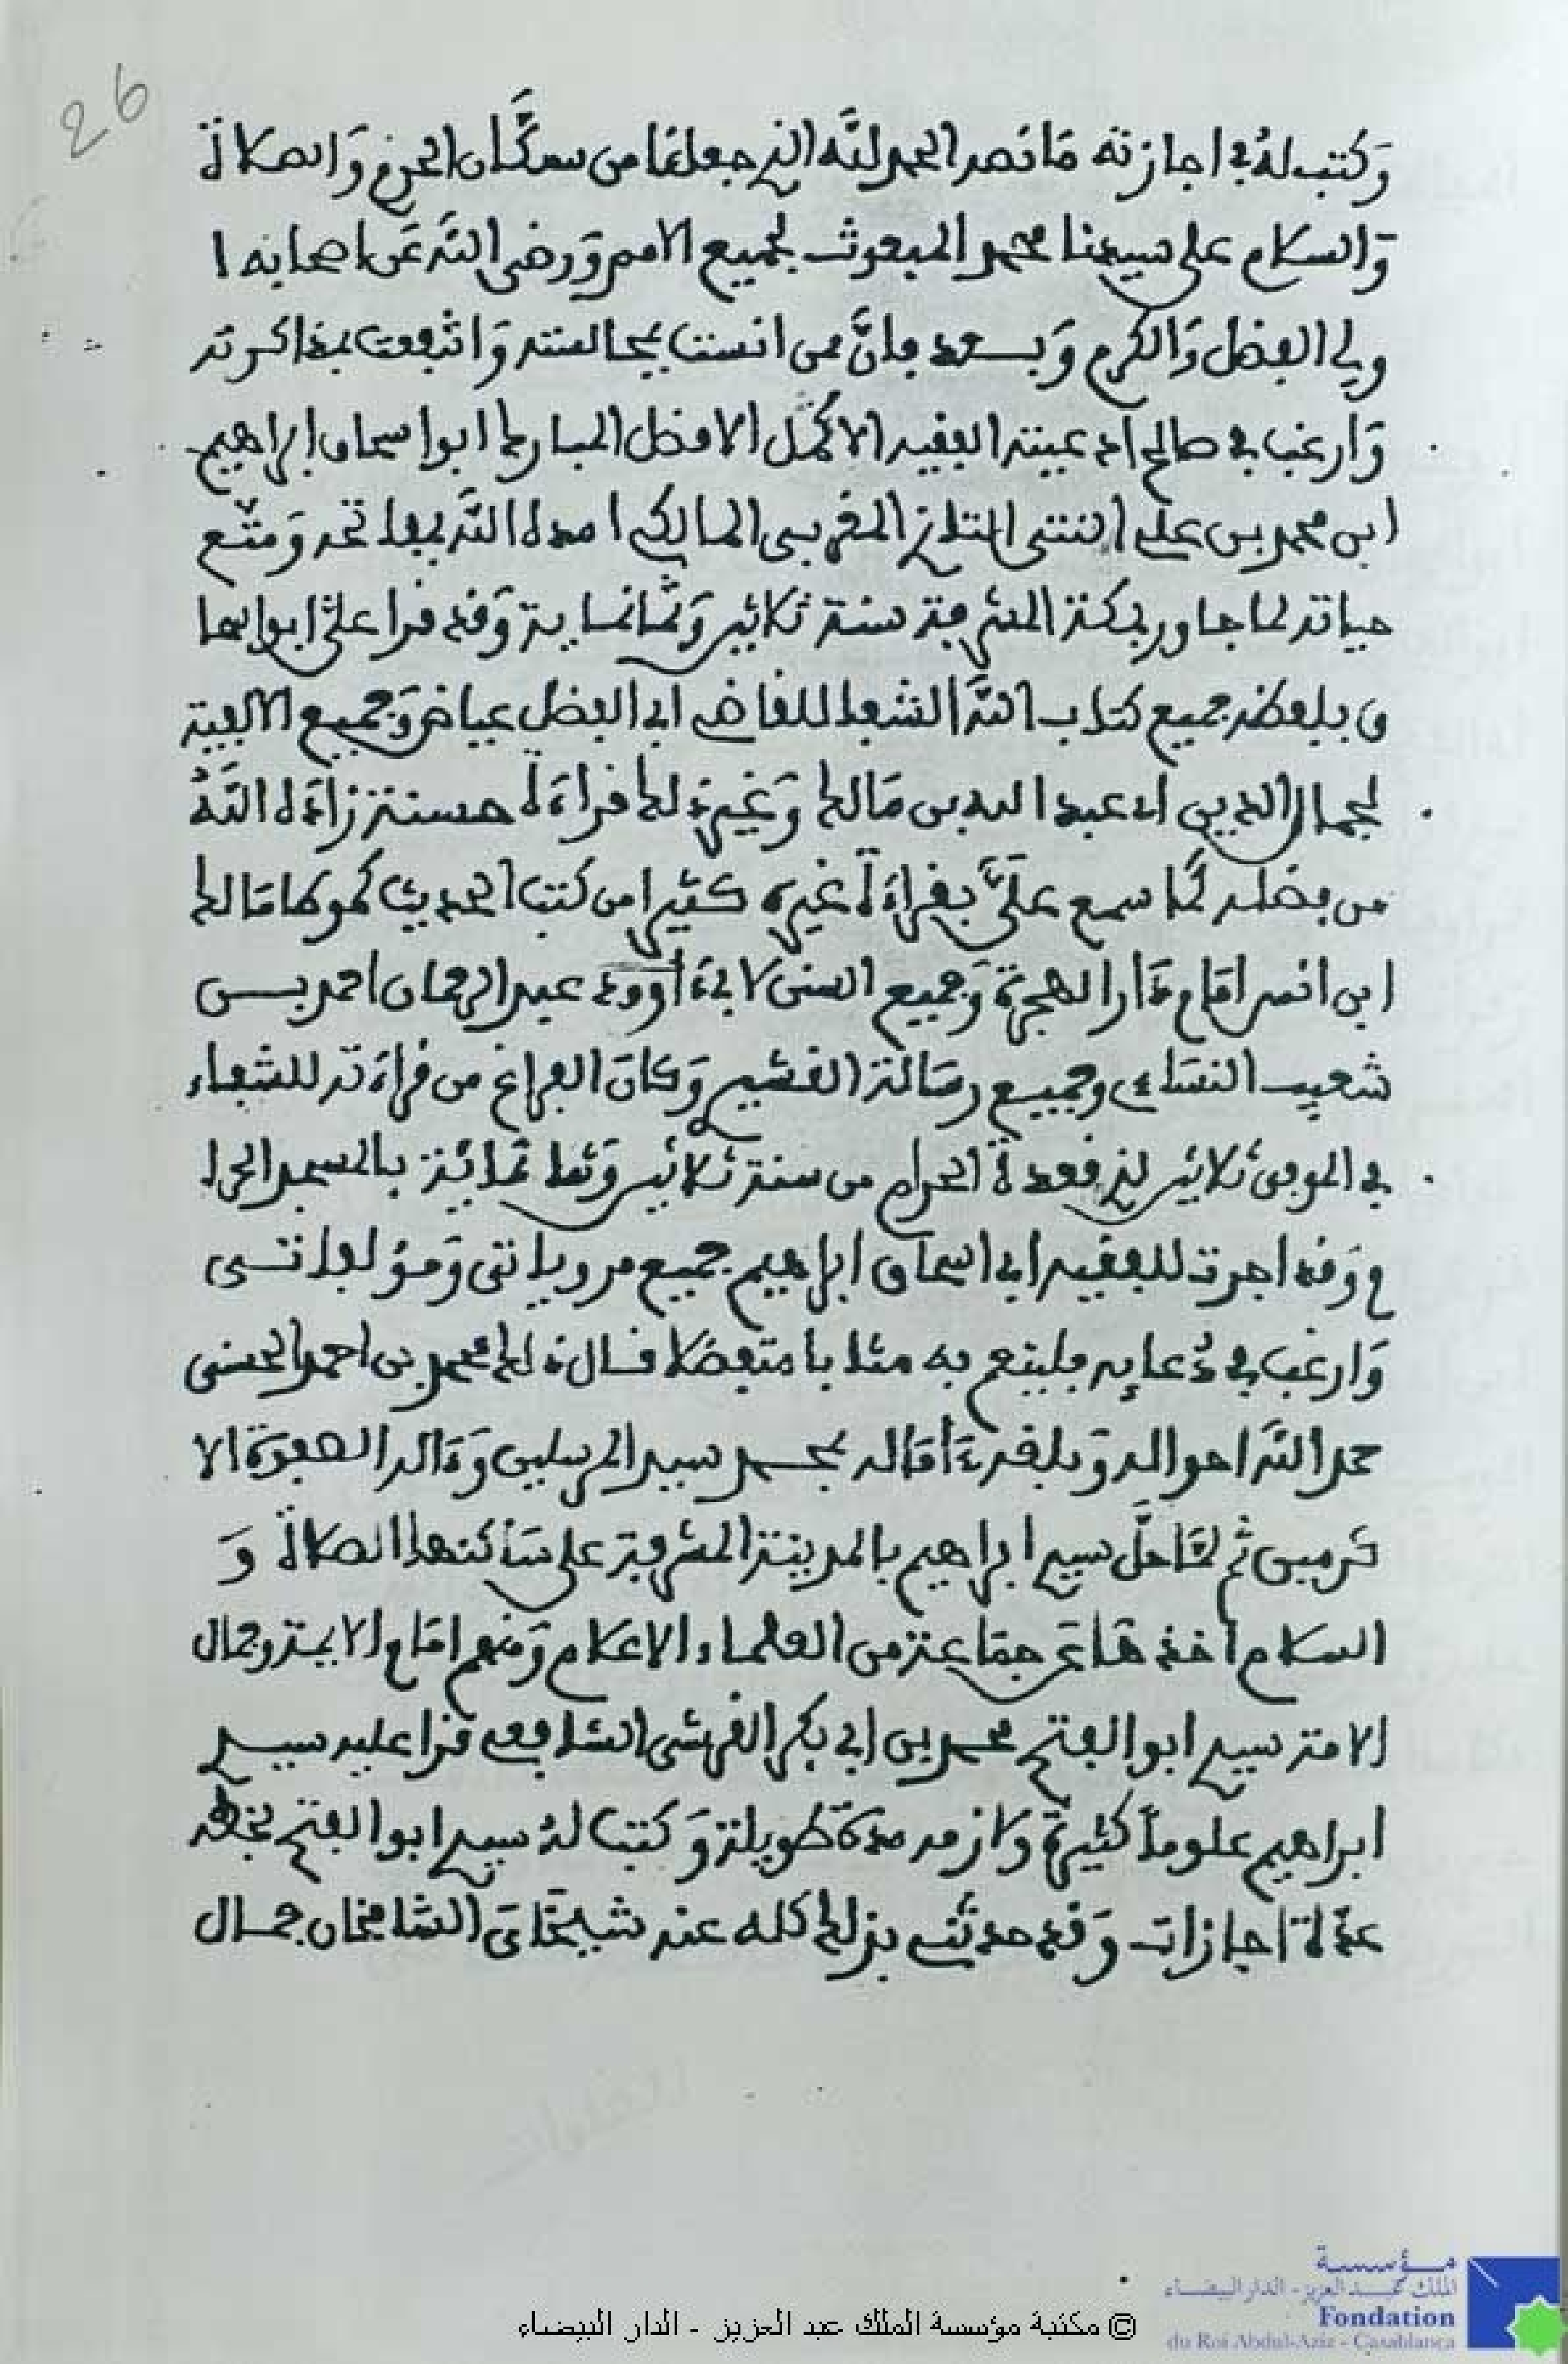 26
وَكتب لهُ في اجازته مَا نَصه الحمد لله الذي جعلنَا من سكَّان الحرم وَالصلاة
وَالسلام على سيدنا محمد المبعوث لجميع الامم وَرضي اللَّه عَن اصحابه ا
ولي الفضل وَالكرم وَبعد فإنَّ ممن انست بمجالسته وَانتفعت بمذاكرته
وَارغب في صالح ادعيته الفقيه الاكمل الافضل المبارك ابو اسحاق ابراهيم
ابن محمد بن علي التازي المغربي المالكي امده اللَّه بمواد تحه وَمتّع
حياته لما جاور بمكة المشرفة سنة ثلاثين وَثمانماية وَقد قرا عليَّ ابو اسحا
ق بلفظه جميع كتاب اللَّه الشفا للقاضي ابي الفضل عياض وَجميع الالفية
لجمال الدين ابي عبد الله بن مَالك وَغيرذلك قراءَة حسنة زادَه اللَّهُ
من فضله كَما سمع علَيَّ بقراءَة غيره كثيرا من كتب الحديث كموطا مَالك
ابن انس امَام دَار الهجرة وَجميع السنن لابي داوود عبد الرحمان احمد بن
شعيب النسَاءي وجميع رسَالة القشيري وَكانَ الفراغ من قراءَته للشفاء
في الموفي ثلاثين لذي قعدة الحرام من سنة ثلاثين وَثمانمائة بالمسجد الحرا
م وَقد اجزت للفقيه ابي اسحاق ابراهيم جميع مروياتي وَمؤلفاتي
وَارغب في دُعايه فلينعم به مثابا متفضلا قال ذلك محمد بن احمد الحسني
حمد اللَّه احواله وَبلغه ءَامَاله بمحمد سيد المرسلين وَءَاله الصفوة الا
كرمين ثم لمَّا حلَّ سيدي ابراهيم بالمدينة المشرفة على سَاكنها الصلاة وَ
السلام اخذ هنا عَن جمَاعة من العلماء الاعلام وَمنهم امَام الايمة وجمال
الامة سيدي ابو الفتح محمد بن ابي بكر القرشي الشافعي قرا عليه سيدي
ابراهيم علوماً كثيرة وَلازمه مدة طويلة وَكتب لهُ سيدي ابو الفتح بخطه
عدّة اجازات وَقد حدثني بذلك كله عنه شيخَايَ الشامخان جمال
مؤسسة
الملك عبد العزيز - الدار البيضاء
Fondation
du Roi Abdul-Aziz - Casablanca
© مكتبة مؤسسة الملك عبد العزيز - الدار البيضاء